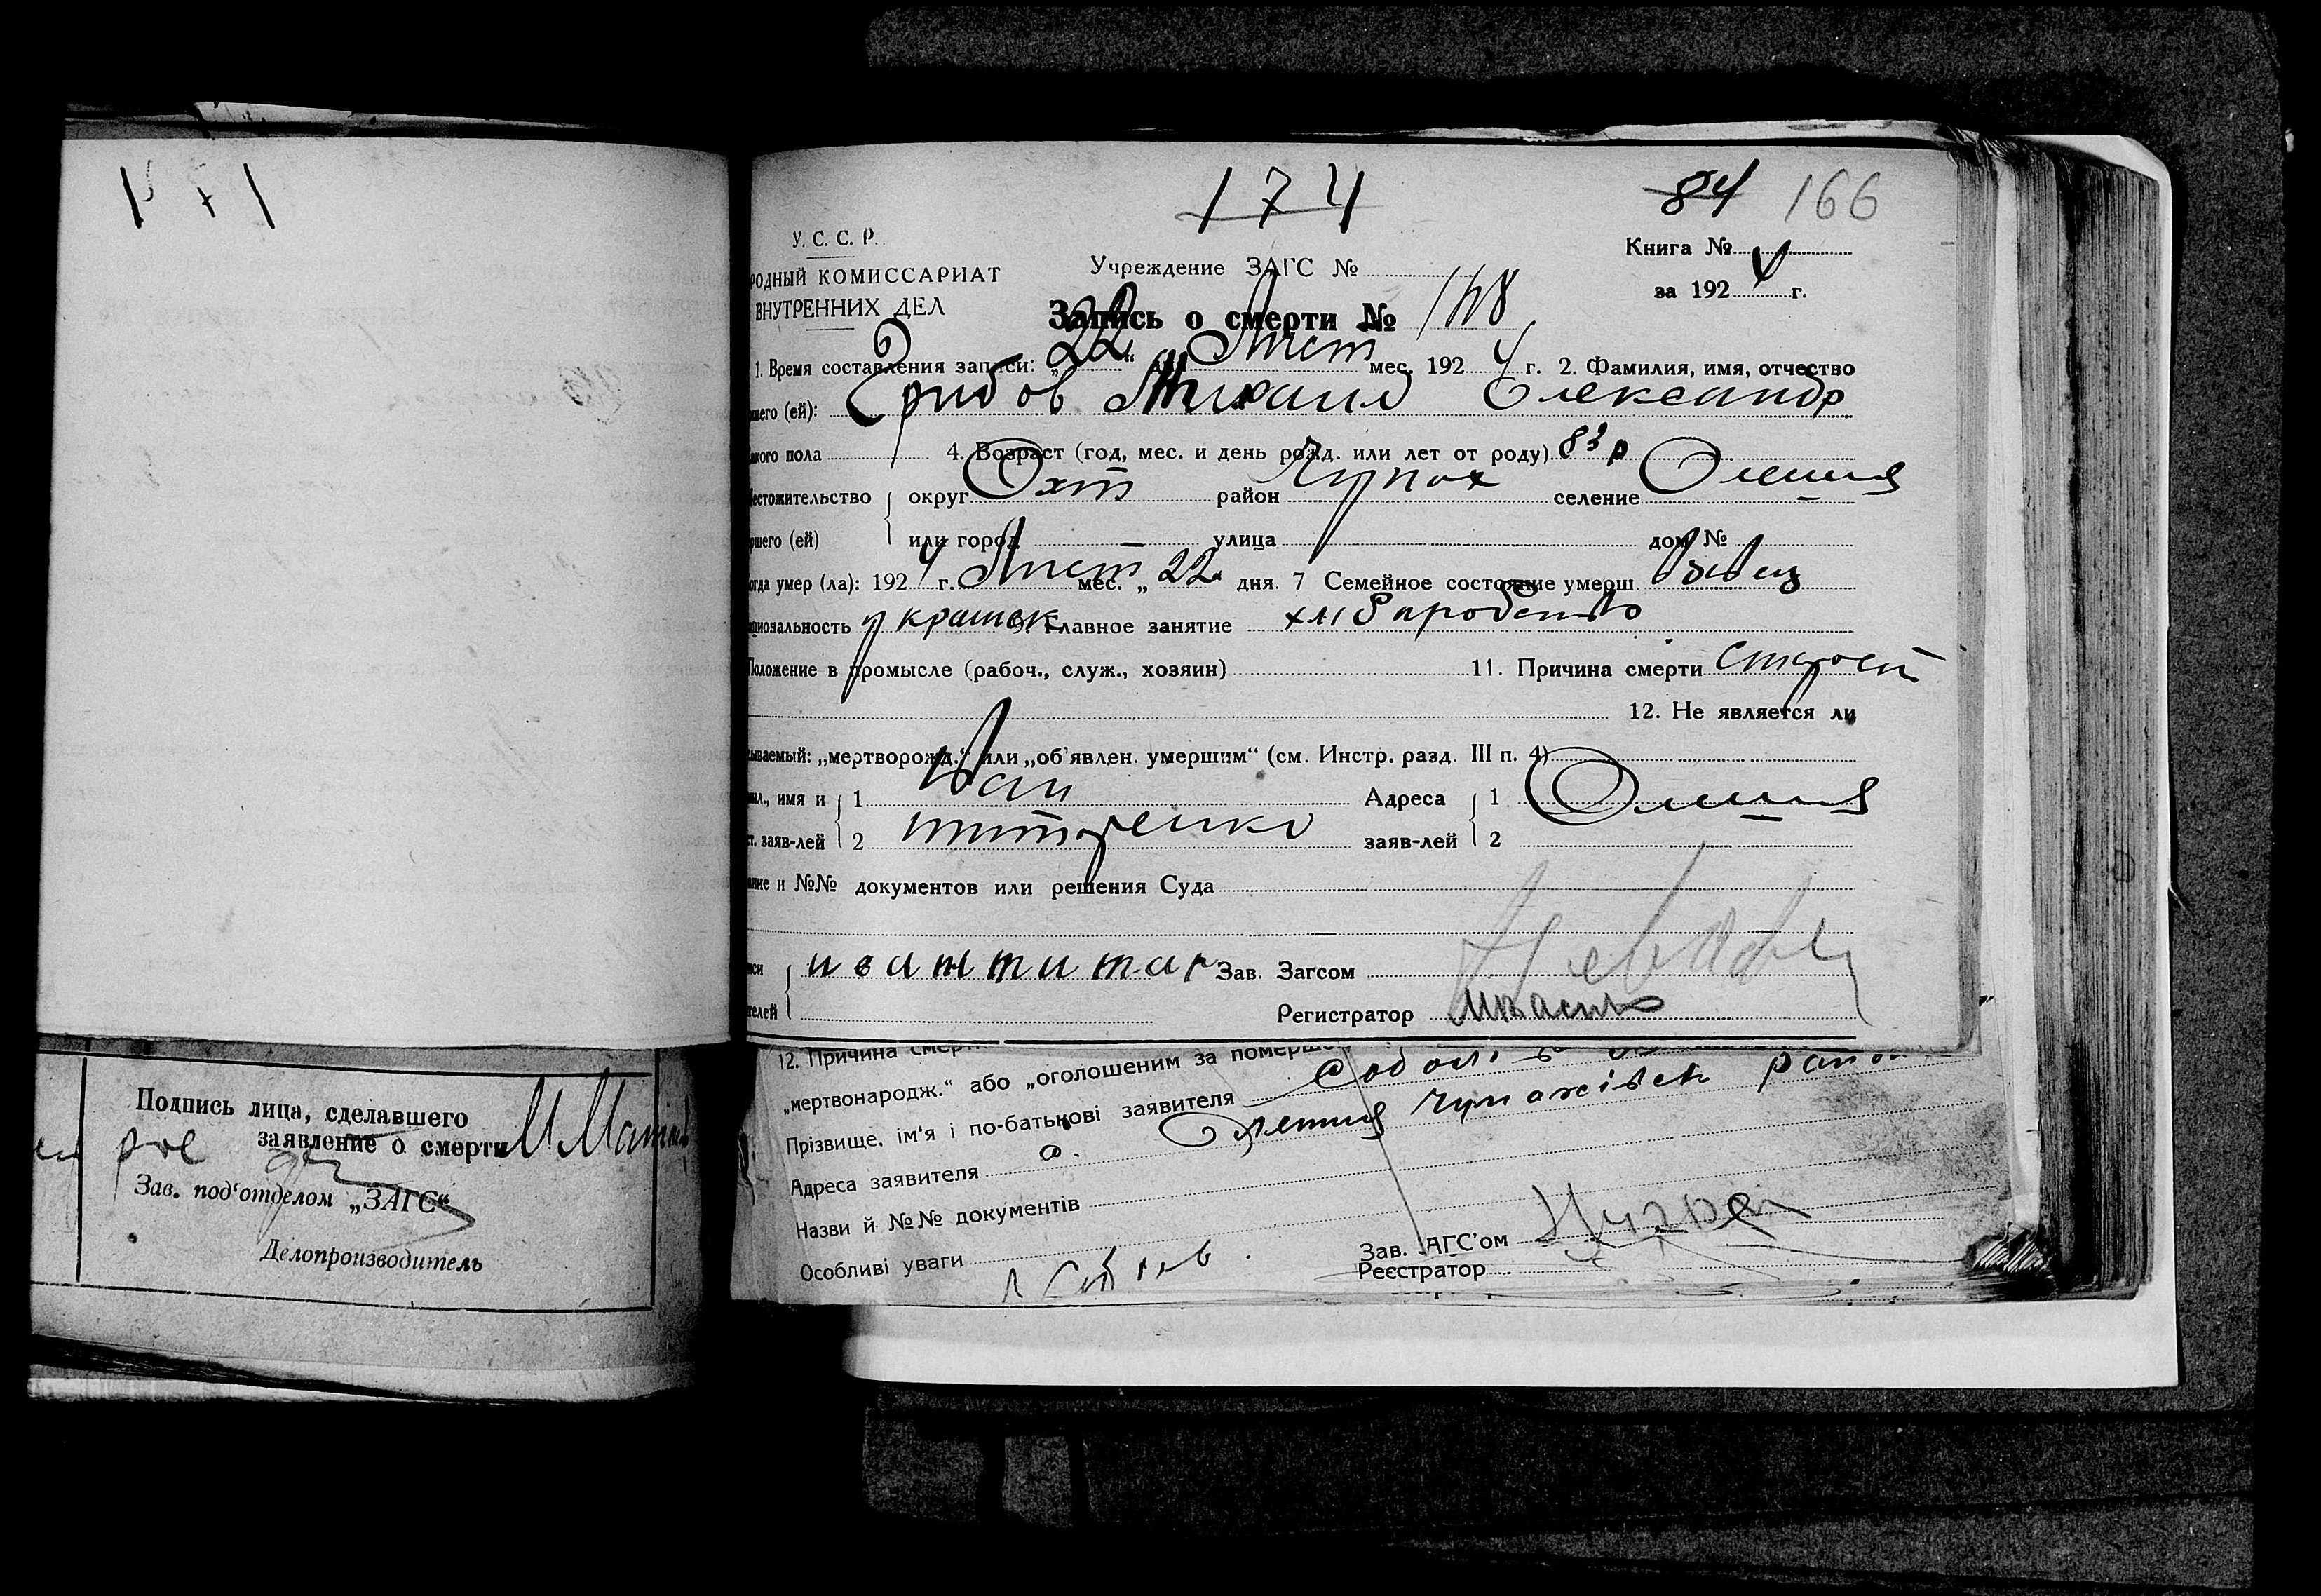 171
174
84 166
У. С. С. Р.
РОДНЫЙ КОМИССАРИАТ
ВНУТРЕННИХ ДЕЛ
Учреждение ЗАГС №
Книга №
за 1924 г.
Запись о смерти № 168
1. Время составления записи: „22“ Лист мес. 1924 г. 2. Фамилия, имя, отчество
шего (ей): Грибов Михаил Олександр
пола 4. Возраст (год, мес. и день рожд. или лет от роду) 83 р
естожительство округ Охт район Чупах селение Олешня
ршего (ей) или город улица дом №
огда умер (ла): 1924 г. Лист мес. „22“ дня. 7 Семейное состояние умерш. вдвец
циональность украинск 9. Главное занятие хлібаробство
Положение в промысле (рабоч., служ., хозяин) 11. Причина смерти старост
12. Не является ли
ываемый: „мертворожд.“ или „об'явлен. умершим“ (см. Инстр. разд. III п. 4)
имя и 1 Иван Адреса 1 Олешня
заяв-лей 2 титаренко заяв-лей 2
ание и №№ документов или решения Суда
иван титар Зав. Загсом
телей Регистратор
12. Причина смер
„мертвонародж.“ або „оголошеним за померш
Прізвище, ім'я і по-батькові заявителя
Адреса заявителя с. Олешня Чупахівськ район
Назви й №№ документів
Особливі уваги
Зав. ЗАГС'ом
Реєстратор
Подпись лица, сделавшего
заявление о смерти
Зав. под'отделом „ЗАГС“
Делопроизводитель